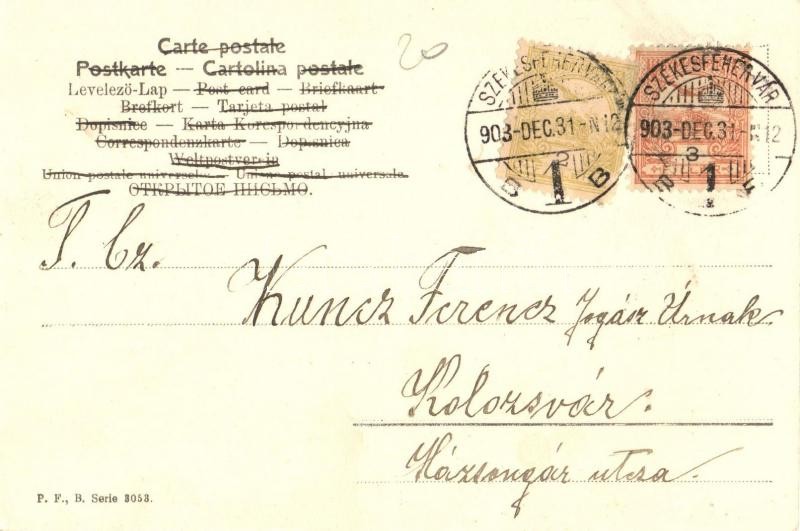 Carte postale
Postkarte — Cartolina postale
Levelező-Lap — Post card — Briefkaart
Brefkort — Tarjeta postal
Dopisnice — Karta Korespondencyjna
Correspondenzkarte — Dopisnica
Weltpostverein
Union postale universelle — Union postal universale
ОТКРЫТОЕ ПИСЬМО.
20
SZÉKESFEHÉRVÁR
903-DEC.31-N12
B 1 B
SZÉKESFEHÉRVÁR
903-DEC.31-N12
1
T. Cz.
Kuncz Ferencz Jogász Úrnak
Kolozsvár.
Házsongár utcza.
P. F., B. Serie 3053.